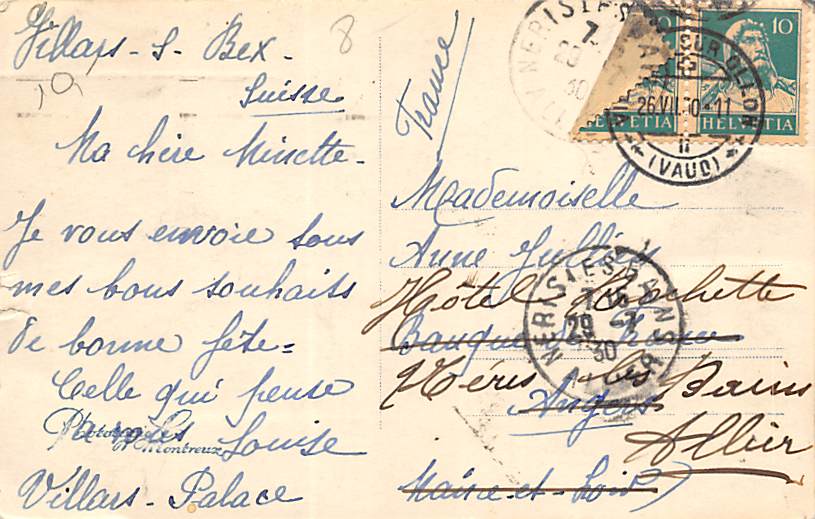 Villars-s-Bex-
Suisse
8
10
Ma chère Minette-
Je vous envoie tous
mes bons souhaits
de bonne fête=
Celle qui pense
à vous Louise
Villars-Palace
Montreux
France
Mademoiselle
Anne Jullien
Hôtel Rochette
Banque de France
Néris-les-Bains
Angers
Allier
Maine-et-Loire
10
10
HELVETIA
HELVETIA
SUR OLLON
26.VII.30-11
(VAUD)
NERIS LES BAINS
7
30
NERIS LES BAINS
29 -7
30
ALLIER